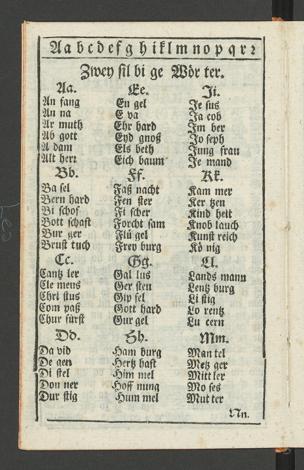 Aa b c d e f g h i k l m n o p q r ꝛ
Zwey sil bi ge Wör ter.
Aa.
An fang
An na
Ar muth
Ab gott
A dam
Alt herr
Bb.
Ba sel
Bern hard
Bi schof
Bott schaft
Bur ger
Brust tuch
Cc.
Cantz ler
Cle mens
Chri stus
Com paß
Chur fürst
Dd.
Da vid
De gen
Di stel
Don ner
Dur stig
Ee.
En gel
E va
Ehr hard
Eyd gnoß
Els beth
Eich baum
Ff.
Faß nacht
Fen ster
Fi scher
Forcht sam
Flü gel
Frey burg
Gg.
Gal lus
Ger sten
Gip sel
Gott hard
Gur gel
Hh.
Ham burg
Hertz haft
Him mel
Hoff nung
Hum mel
Ji.
Je sus
Ja cob
Im ber
Jo seph
Jung frau
Je mand
Kk.
Kam mer
Ker tzen
Kind heit
Knob lauch
Kunst reich
Kö nig
Ll.
Lands mann
Lentz burg
Li stig
Lo rentz
Lu cern
Mm.
Man tel
Metz ger
Mitt ler
Mo ses
Mut ter
Nn.